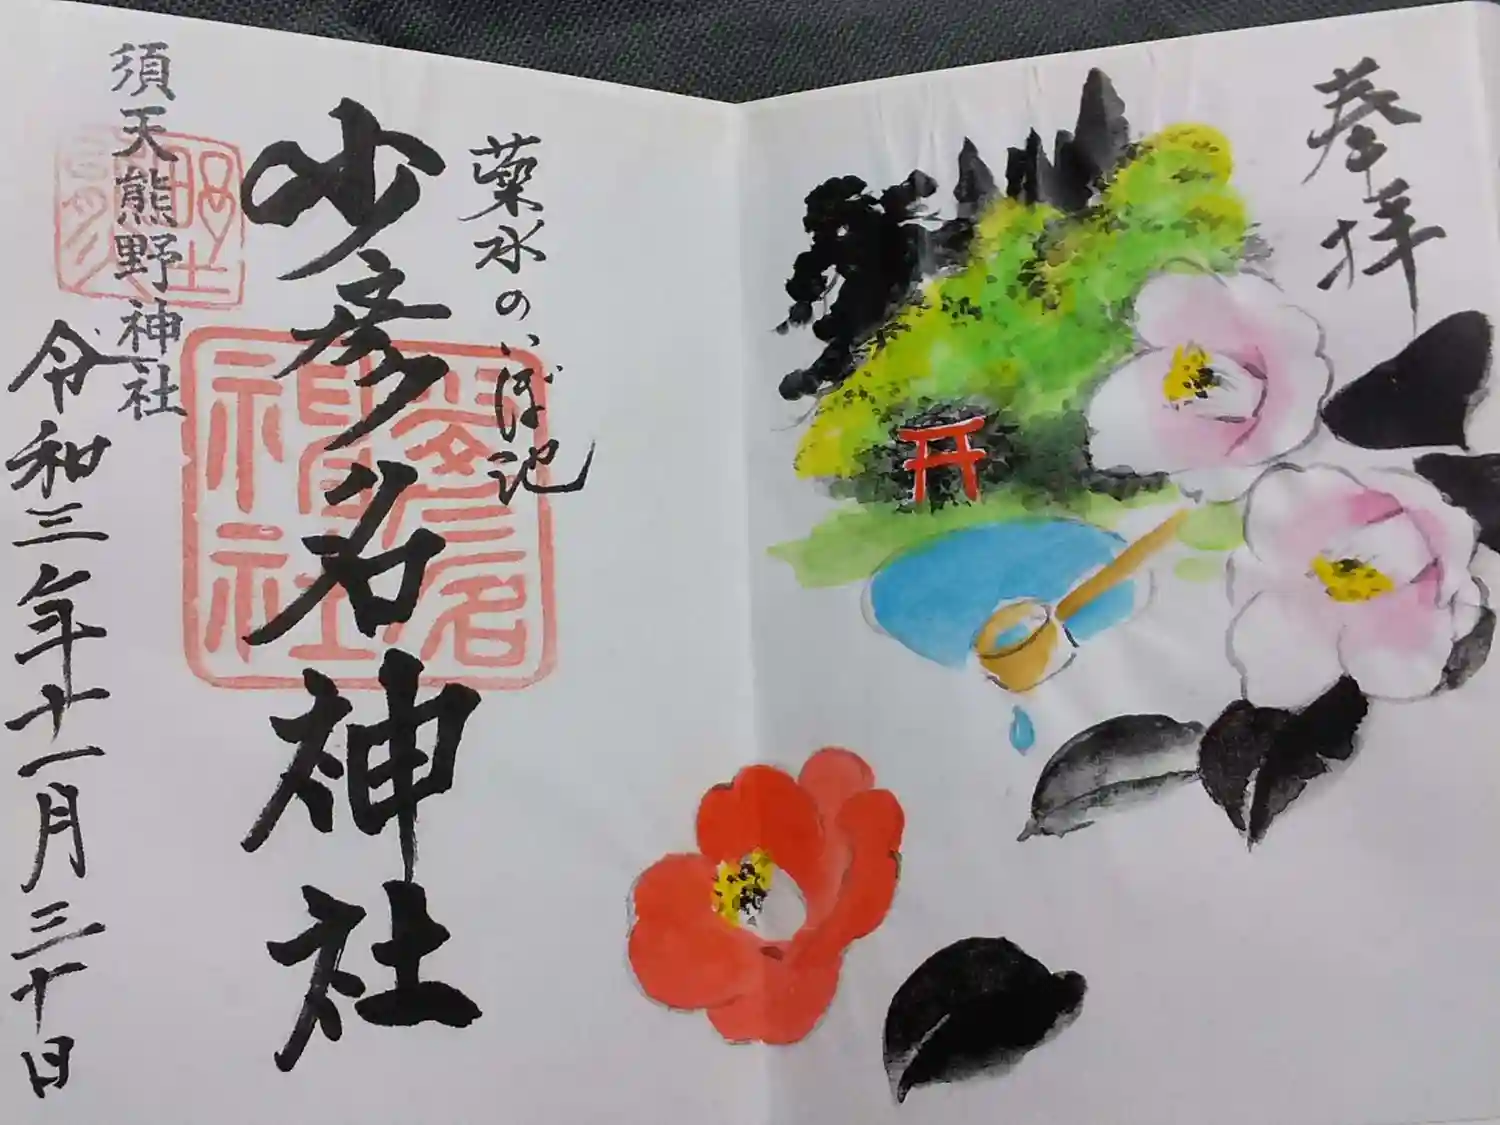 奉拝
薬水のいぼ池
少彦名神社
須天熊野神社
令和三年十一月三十日